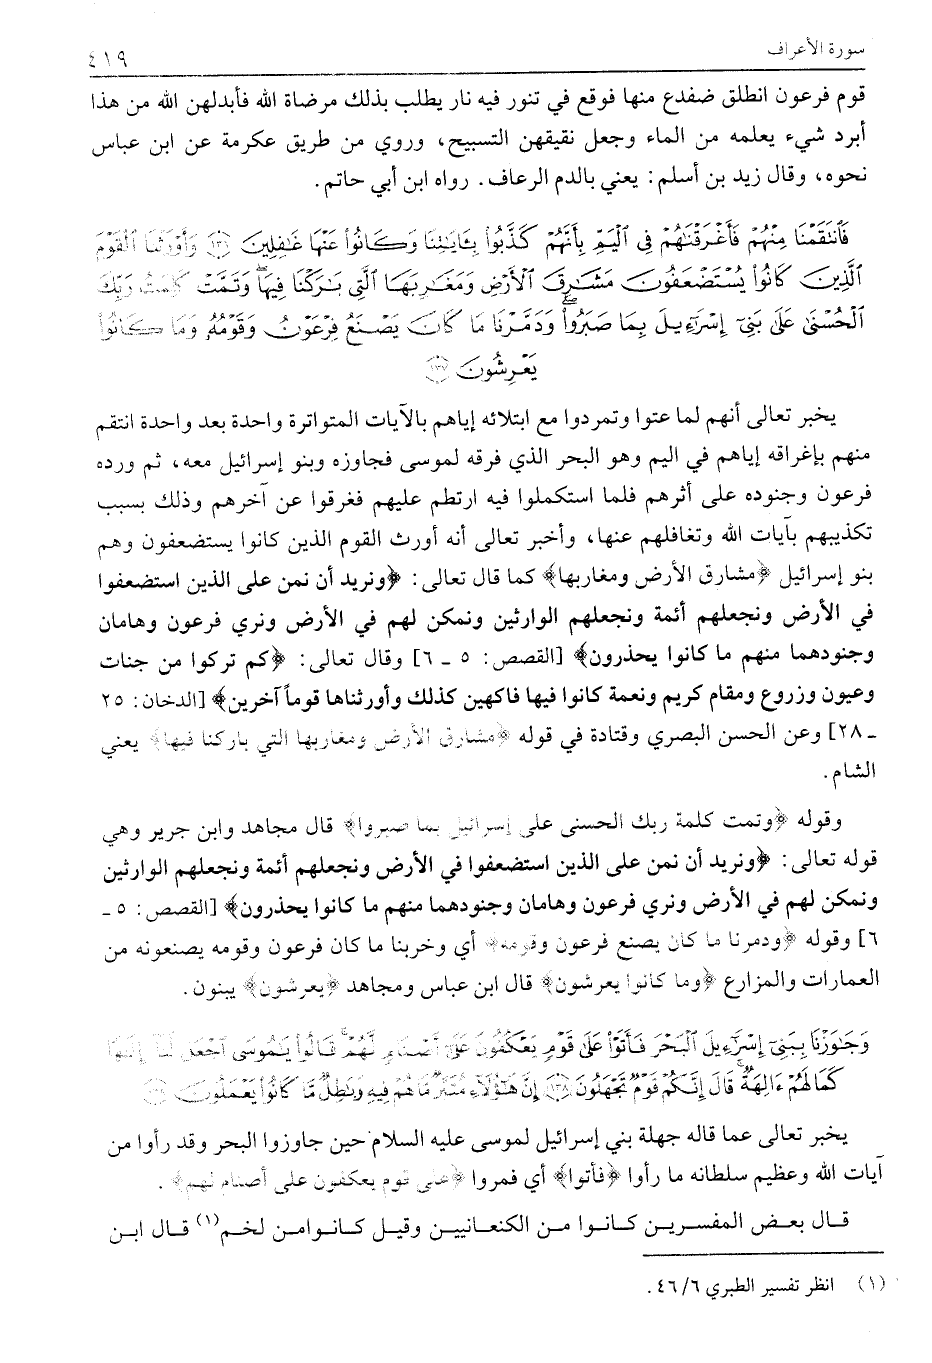 سورة الأعراف
٤١٩
قوم فرعون انطلق ضفدع منها فوقع في تنور فيه نار يطلب بذلك مرضاة الله فأبدلهن الله من هذا
أبرد شيء يعلمه من الماء وجعل نقيقهن التسبيح، وروي من طريق عكرمة عن ابن عباس
نحوه، وقال زيد بن أسلم: يعني بالدم الرعاف. رواه ابن أبي حاتم.
فَٱنتَقَمْنَا مِنْهُمْ فَأَغْرَقْنَٰهُمْ فِى ٱلْيَمِّ بِأَنَّهُمْ كَذَّبُوا۟ بِـَٔايَٰتِنَا وَكَانُوا۟ عَنْهَا غَٰفِلِينَ ﴿١٣٦﴾ وَأَوْرَثْنَا ٱلْقَوْمَ
ٱلَّذِينَ كَانُوا۟ يُسْتَضْعَفُونَ مَشَٰرِقَ ٱلْأَرْضِ وَمَغَٰرِبَهَا ٱلَّتِى بَٰرَكْنَا فِيهَا ۖ وَتَمَّتْ كَلِمَتُ رَبِّكَ
ٱلْحُسْنَىٰ عَلَىٰ بَنِىٓ إِسْرَٰٓءِيلَ بِمَا صَبَرُوا۟ ۖ وَدَمَّرْنَا مَا كَانَ يَصْنَعُ فِرْعَوْنُ وَقَوْمُهُۥ وَمَا كَانُوا۟
يَعْرِشُونَ ﴿١٣٧﴾
يخبر تعالى أنهم لما عتوا وتمردوا مع ابتلائه إياهم بالآيات المتواترة واحدة بعد واحدة انتقم
منهم بإغراقه إياهم في اليم وهو البحر الذي فرقه لموسى فجاوزه وبنو إسرائيل معه، ثم ورده
فرعون وجنوده على أثرهم فلما استكملوا فيه ارتطم عليهم فغرقوا عن آخرهم وذلك بسبب
تكذيبهم بآيات الله وتغافلهم عنها، وأخبر تعالى أنه أورث القوم الذين كانوا يستضعفون وهم
بنو إسرائيل ﴿مشارق الأرض ومغاربها﴾ كما قال تعالى: ﴿ونريد أن نمن على الذين استضعفوا
في الأرض ونجعلهم أئمة ونجعلهم الوارثين ونمكن لهم في الأرض ونري فرعون وهامان
وجنودهما منهم ما كانوا يحذرون﴾ [القصص: ٥ ـ ٦] وقال تعالى: ﴿كم تركوا من جنات
وعيون وزروع ومقام كريم ونعمة كانوا فيها فاكهين كذلك وأورثناها قوماً آخرين﴾ [الدخان: ٢٥
ـ ٢٨] وعن الحسن البصري وقتادة في قوله ﴿مشارق الأرض ومغاربها التي باركنا فيها﴾ يعني
الشام.
وقوله ﴿وتمت كلمة ربك الحسنى على إسرائيل بما صبروا﴾ قال مجاهد وابن جرير وهي
قوله تعالى: ﴿ونريد أن نمن على الذين استضعفوا في الأرض ونجعلهم أئمة ونجعلهم الوارثين
ونمكن لهم في الأرض ونري فرعون وهامان وجنودهما منهم ما كانوا يحذرون﴾ [القصص: ٥ ـ
٦] وقوله ﴿ودمرنا ما كان يصنع فرعون وقومه﴾ أي وخربنا ما كان فرعون وقومه يصنعونه من
العمارات والمزارع ﴿وما كانوا يعرشون﴾ قال ابن عباس ومجاهد ﴿يعرشون﴾ يبنون.
وَجَٰوَزْنَا بِبَنِىٓ إِسْرَٰٓءِيلَ ٱلْبَحْرَ فَأَتَوْا۟ عَلَىٰ قَوْمٍ يَعْكُفُونَ عَلَىٰٓ أَصْنَامٍ لَّهُمْ ۚ قَالُوا۟ يَٰمُوسَى ٱجْعَل لَّنَآ إِلَٰهًا
كَمَا لَهُمْ ءَالِهَةٌ ۚ قَالَ إِنَّكُمْ قَوْمٌ تَجْهَلُونَ ﴿١٣٨﴾ إِنَّ هَٰٓؤُلَآءِ مُتَبَّرٌ مَّا هُمْ فِيهِ وَبَٰطِلٌ مَّا كَانُوا۟ يَعْمَلُونَ
يخبر تعالى عما قاله جهلة بني إسرائيل لموسى عليه السلام حين جاوزوا البحر وقد رأوا من
آيات الله وعظيم سلطانه ما رأوا ﴿فأتوا﴾ أي فمروا ﴿على قوم يعكفون على أصنام لهم﴾.
قال بعض المفسرين كانوا من الكنعانيين وقيل كانوا من لخم(١) قال ابن
(١) انظر تفسير الطبري ٤٦/٦.